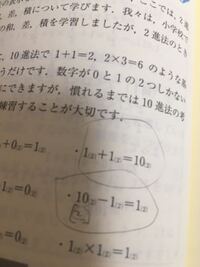 差，積について学びます．我々は，小学校で
の和，差，積を学習しましたが，2進法のとき
，10進法で 1+1=2，2×3=6 のような基
うだけです．数字が 0 と 1 の 2 つしかない
にできますが，慣れるまでは 10 進法の考
練習することが大切です．
+0₍₂₎=1₍₂₎
・1₍₂₎+1₍₂₎=10₍₂₎
=1₍₂₎
・10₍₂₎−1₍₂₎=1₍₂₎
=0₍₂₎
・1₍₂₎×1₍₂₎=1₍₂₎